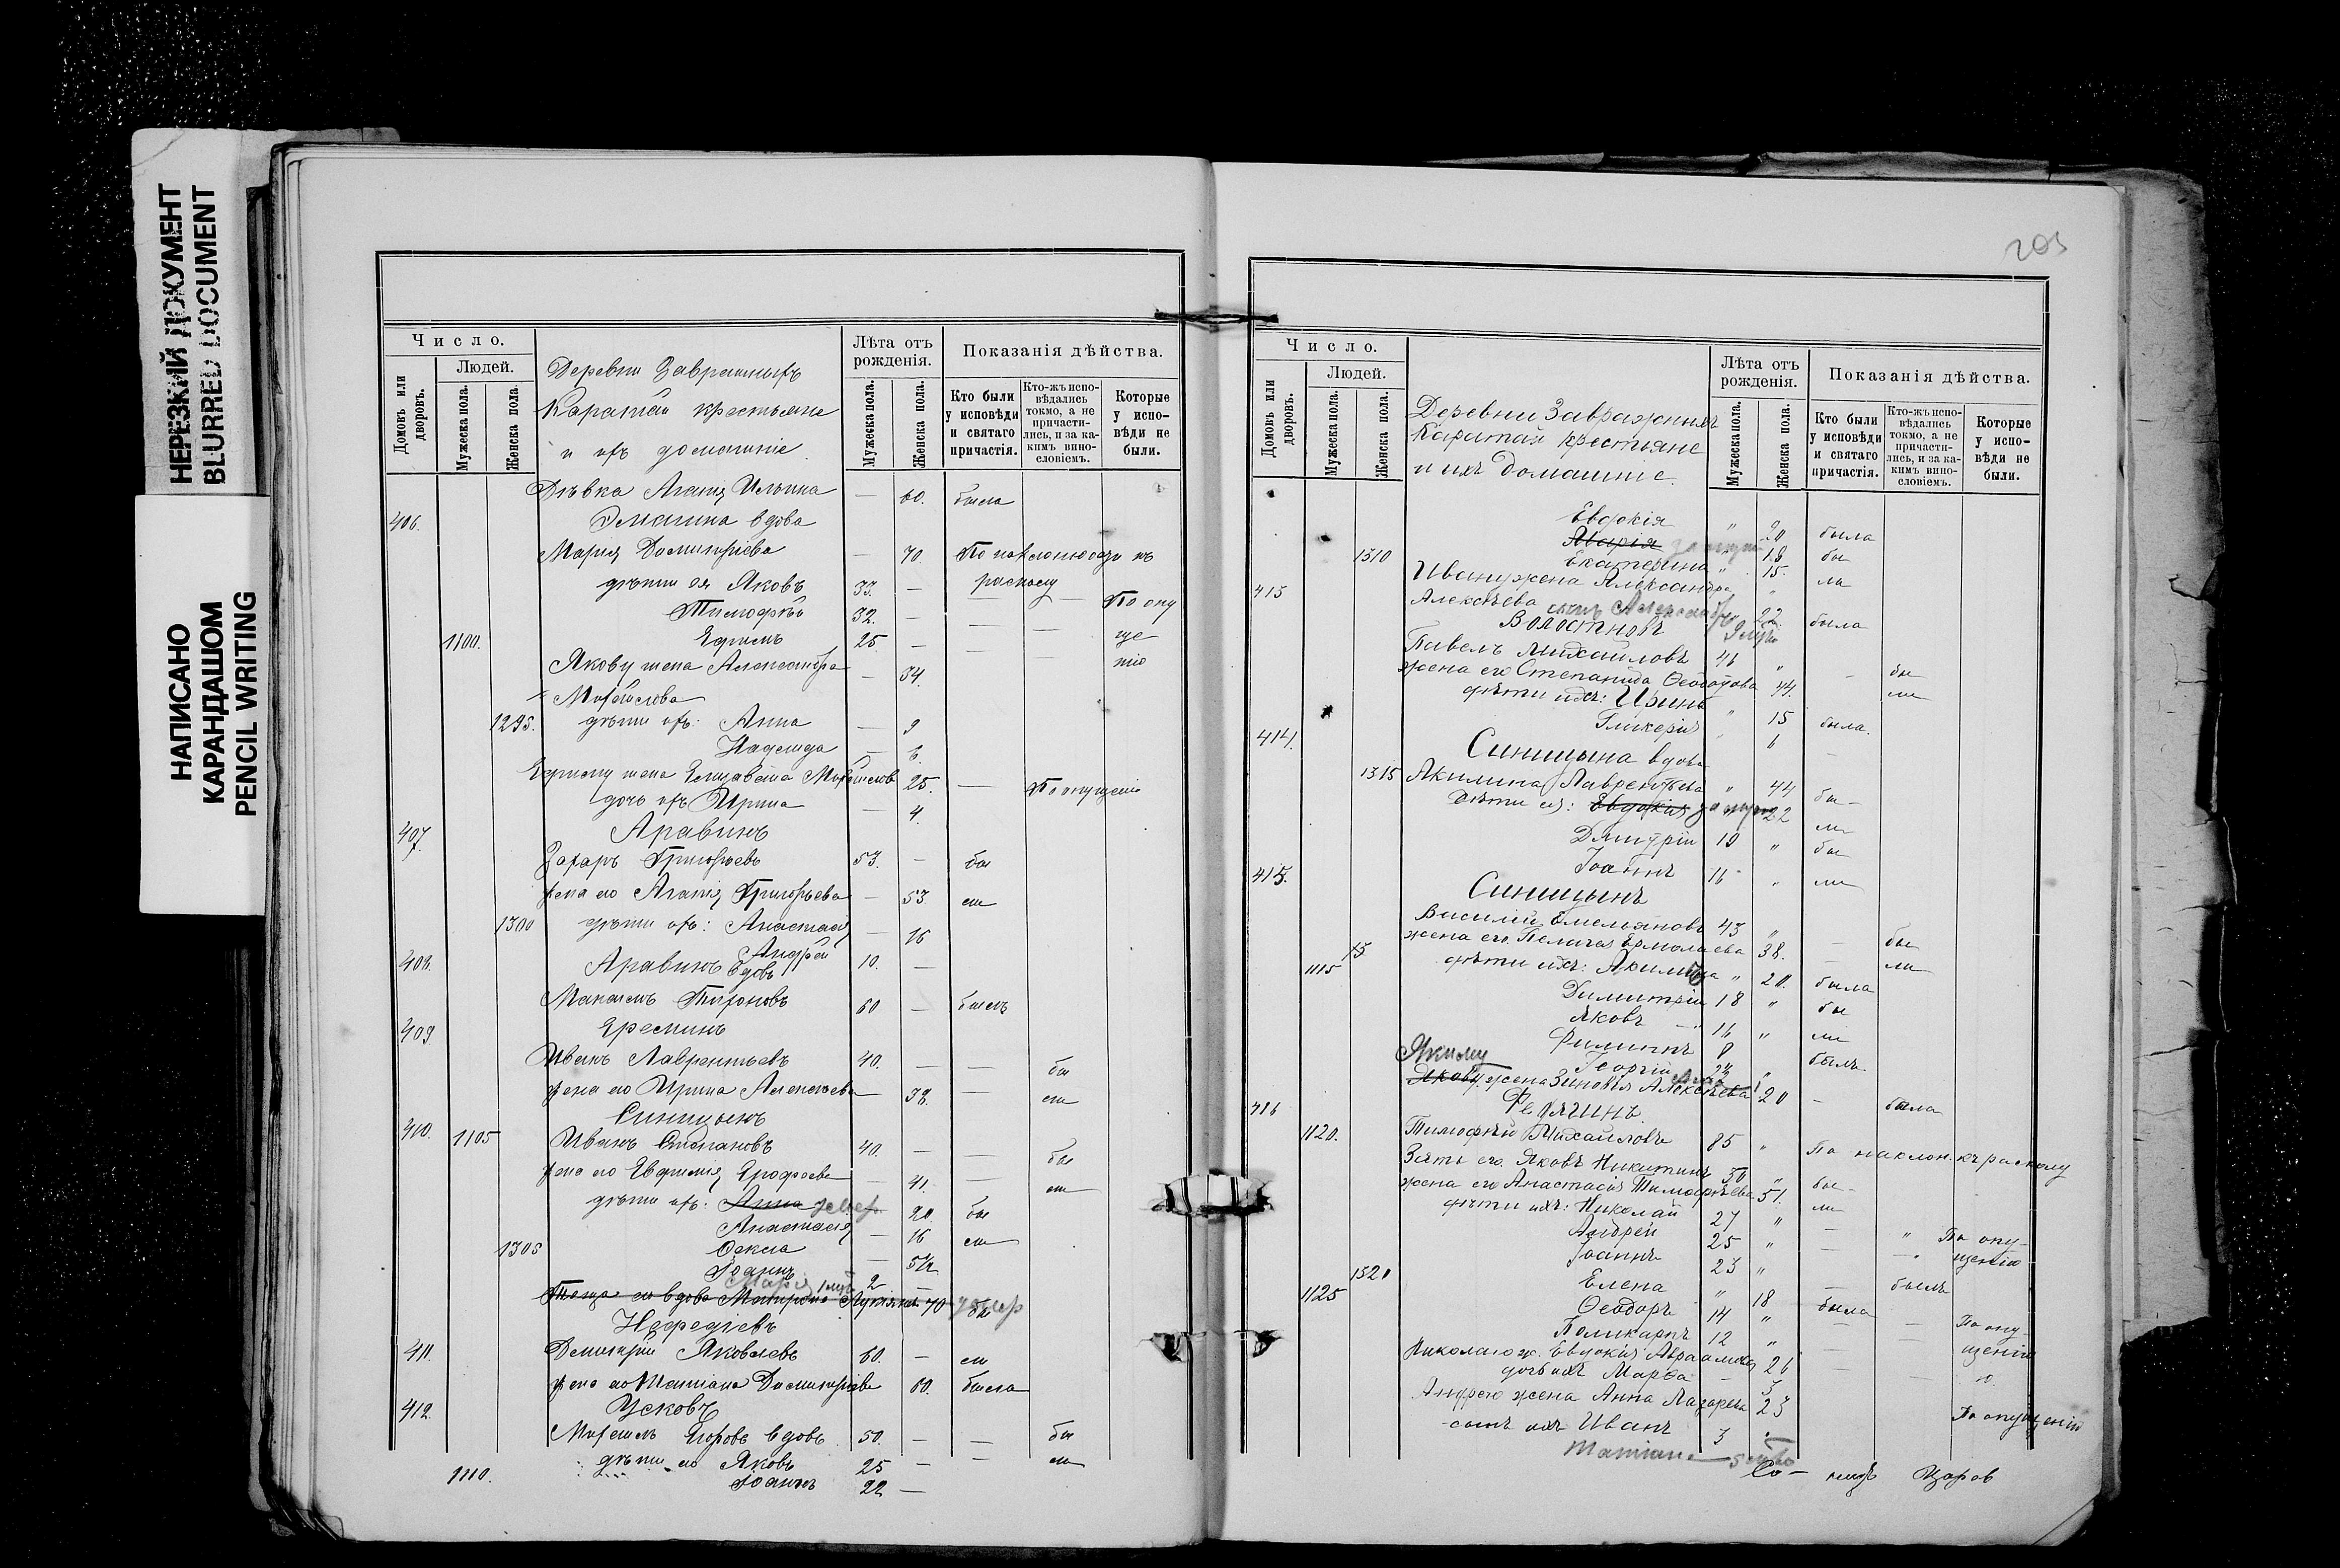 НЕРЕЗКИЙ ДОКУМЕНТ
BLURRED DOCUMENT
НАПИСАНО
КАРАНДАШОМ
PENCIL WRITING
Число.
Людей.
Домовъ или дворовъ.
Мужеска пола.
Женска пола.
Деревни Завражныхъ
Каратай крестьяне
и ихъ домашніе.
Лѣта отъ рожденія.
Мужеска пола.
Женска пола.
Показанія дѣйства.
Кто были у исповѣди и святаго причастія.
Кто-жъ исповѣдались токмо, а не причастились, и за какимъ винословіемъ.
Которые у исповѣди не были.
Дѣвка Агапія Ильина — 60. была
406. вдова
Марія Димитріева — 70. По наклонности къ
дѣти ея Яковъ 33. — расколу
Тимофей 32. — — — По опу
1100. Ефимъ 25 — — — ще
Якову жена Александра — 34. нію
1295. дѣти ихъ: Анна — 9
Надежда — 6.
Ефиму жена Елизавета 25. — По опущенію
дочь ихъ Ирина — 4.
407. Аравинъ
Захаръ Григорьевъ 53. — бы
жена его Агапія Григорьева — 53. ли
1300 дѣти ихъ: Анастасія — 16
Андрей 10. —
408. Аравинъ вдовъ
Максимъ Тихоновъ 60 — былъ
409. Ереминъ
Иванъ Лаврентьевъ 40. — — бы
жена его Ирина Алексѣева — 38. — ли
Синицынъ
410. 1105 Иванъ Степановъ 40. — — бы
жена его Евфимія — 41. — ли
дѣти ихъ: Анна 20. бы
Анастасія — 16 ли
1305 Ѳекла — 5½
Іоаннъ 2 —
Марія
Теща его вдова Матрона 70 умер
Нефедіевъ
411. Димитрій Яковлевъ 60. — ли
жена его Татіана Димитріева 60. была
412. Усковъ
Егоровъ вдовъ 50. — — бы
дѣти его Яковъ 25 — — ли
1110. Іоаннъ 22 —
203
Число.
Людей.
Домовъ или дворовъ.
Мужеска пола.
Женска пола.
Деревни Завражныхъ
Каратай крестьяне
и ихъ домашніе.
Лѣта отъ рожденія.
Мужеска пола.
Женска пола.
Показанія дѣйства.
Кто были у исповѣди и святаго причастія.
Кто-жъ исповѣдались токмо, а не причастились, и за какимъ винословіемъ.
Которые у исповѣди не были.
Евдокія " 20 была
Марія замуж 18 бы
1310 Екатерина " 15. ли
Ивану жена Александра
413 Алексѣева сынъ Александръ 22. была
Волостновъ
Павелъ Михаиловъ 46 " — бы
жена его Степанида Ѳеодотова 44. ли
дѣти ихъ: Ирина " 15 была.
Гликерія 6 —
414. Синицына вдова
1315 Акилина Лаврентьева " 44 бы—
Дѣти ея: Евдокія замуж 22 ли
Димитрій 19 " бы
Іоаннъ 16 " ли
415. Синицынъ
Василій Емеліановъ 43 " — бы
жена его Пелагія Ермолаева 38. — ли
1115 дѣти ихъ: Акилина " 20. была
Димитрій 18 " бы
Яковъ — 16 " ли
Филиппъ 8 былъ
Акиму Георгій
Якову жена Зиновія Алексѣева 20 — была
416 Редягинъ.
1120. Тимофѣй Михаиловъ 85 " По наклон. къ расколу
Зять его Яковъ Никитинъ 50 " бы—
жена его Анастасія Тимофѣева 51. ли
дѣти ихъ: Николай 27 " — " По опу-
Андрей 25 " — — щенію
Іоаннъ 23 " — былъ
1320 Елена " 18 была
1125 Ѳеодоръ 14 " — — По опу-
Поликарпъ 12 " — щенію
Николаю ж. Евдокія Авраамова 26
дочь ихъ Марѳа — 5
Андрею жена Анна Лазарева 23 По опущенію
сынъ ихъ Иванъ 3 "
Татіана